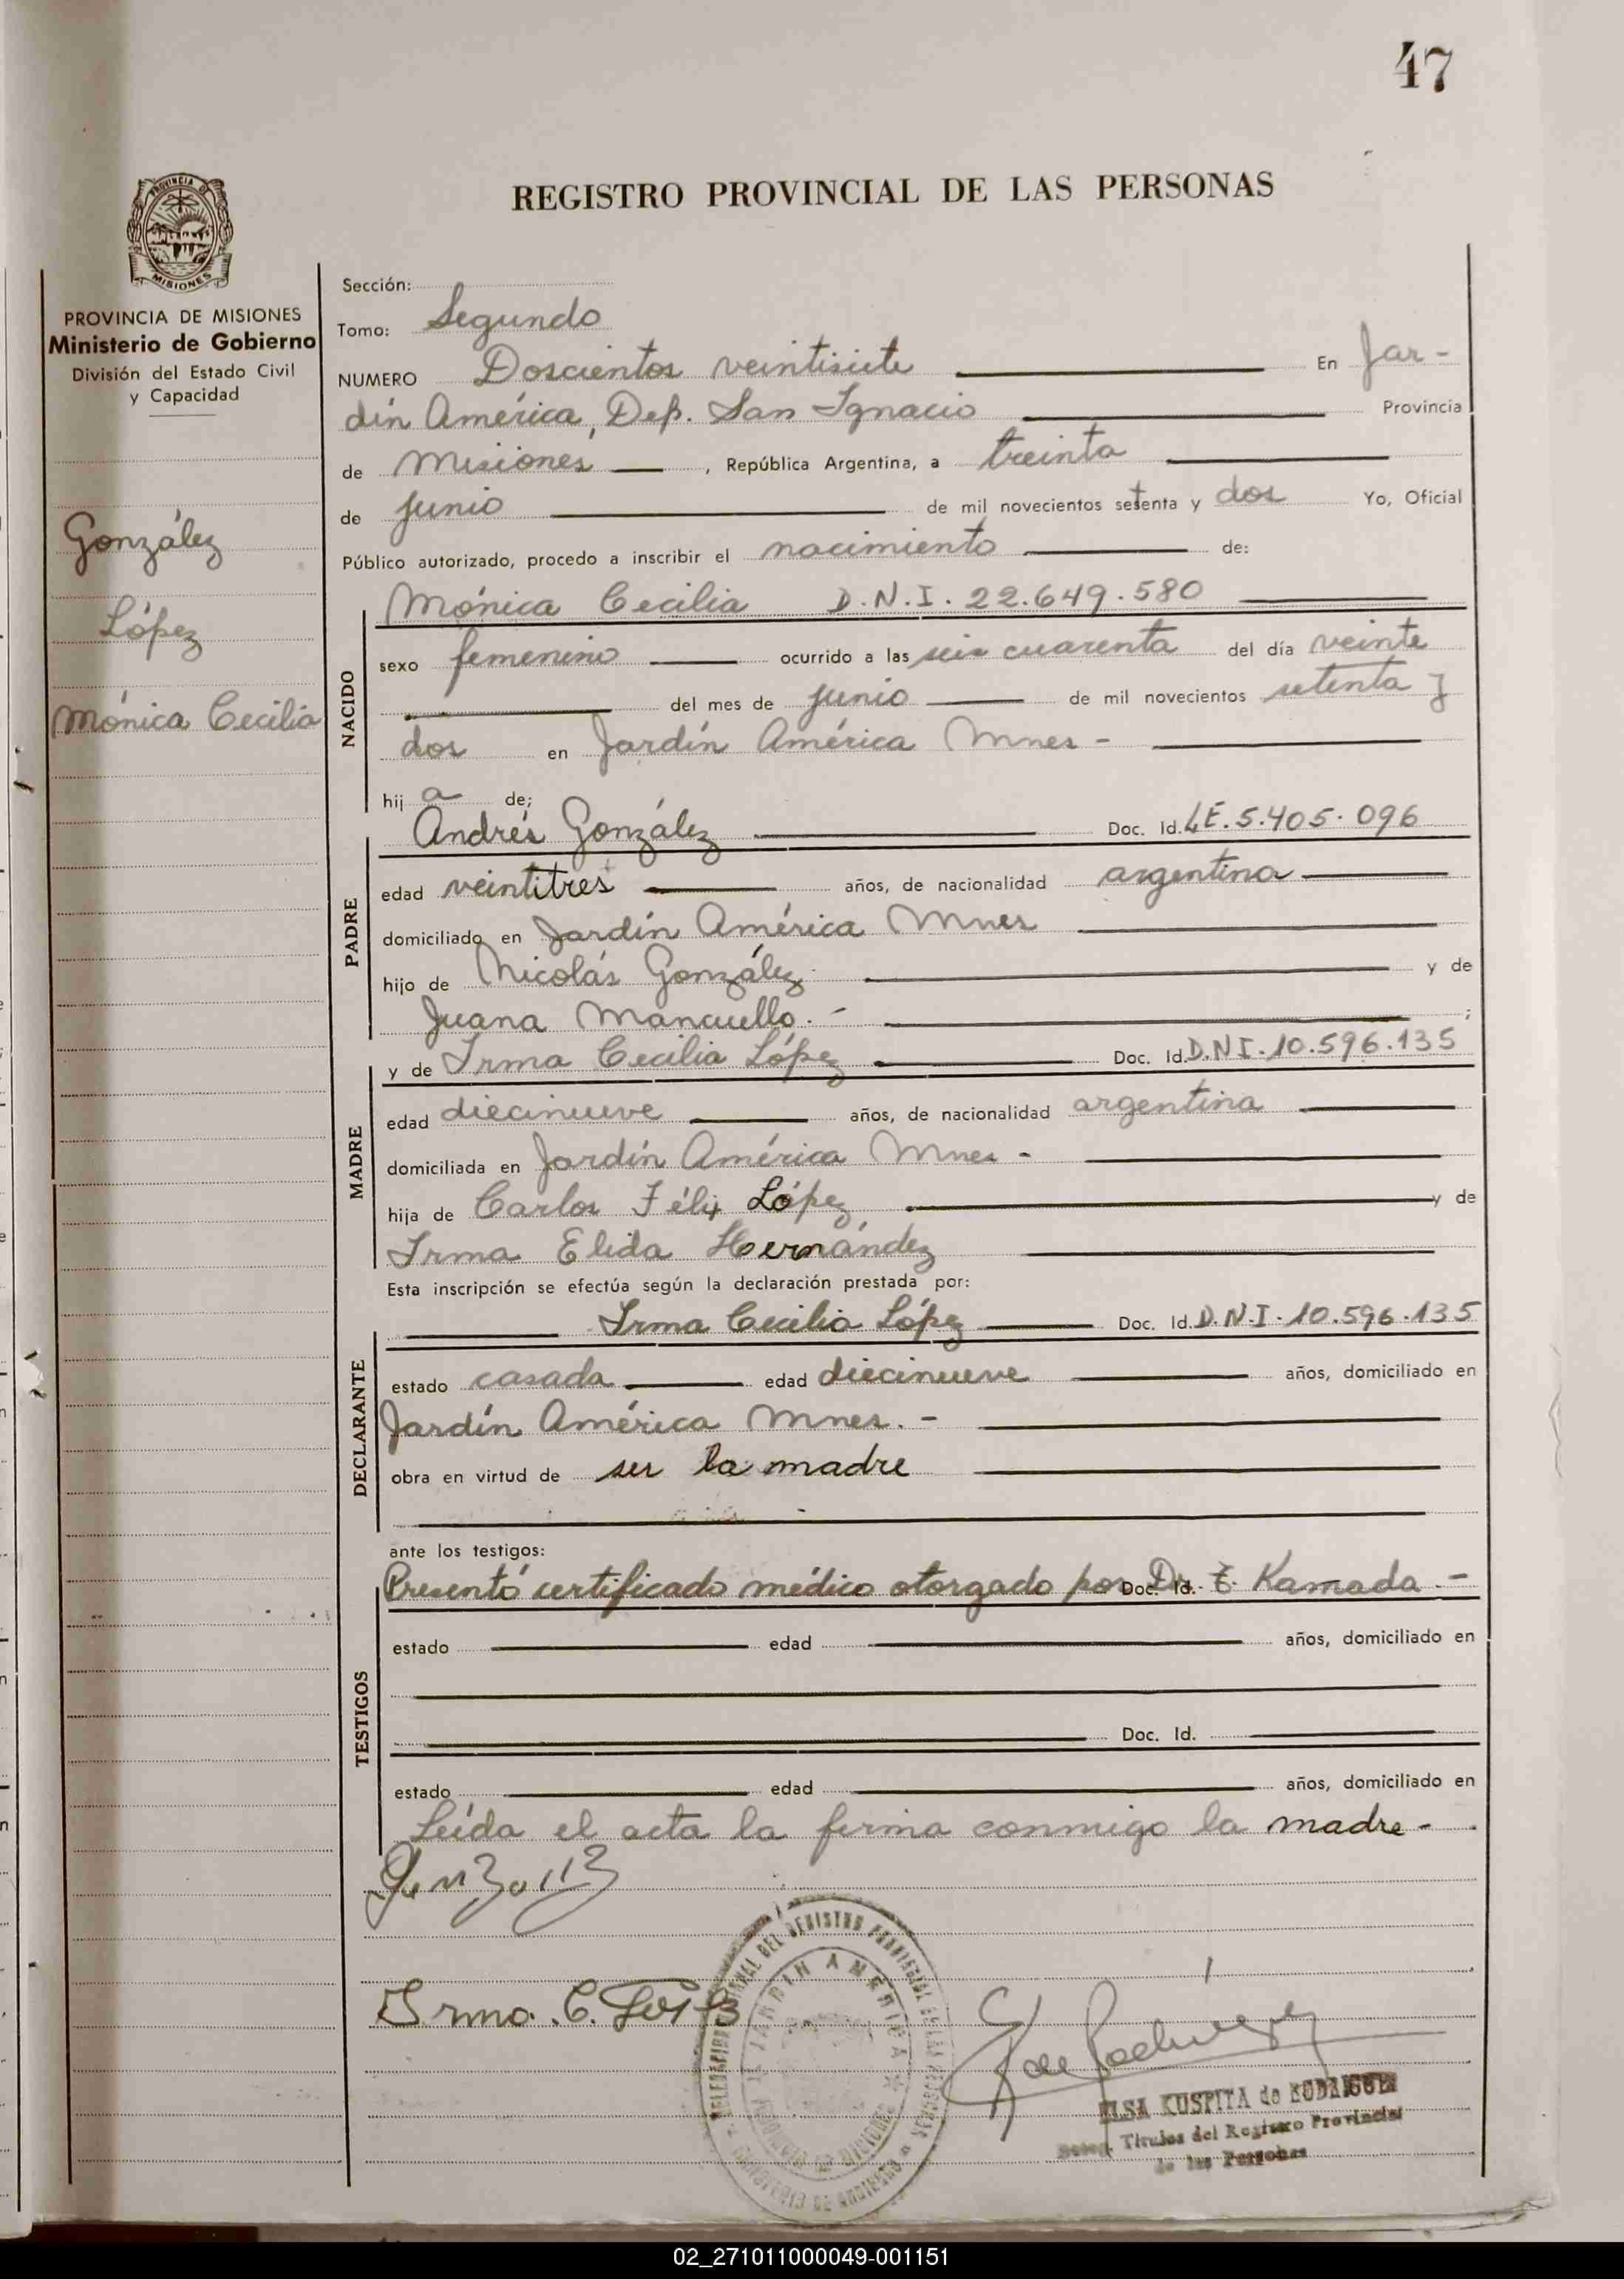 47
REGISTRO PROVINCIAL DE LAS PERSONAS
PROVINCIA DE MISIONES
PROVINCIA DE MISIONES
Ministerio de Gobierno
División del Estado Civil
y Capacidad
González
López
Mónica Cecilia
Sección:
Tomo: Segundo
NUMERO Doscientos veintisiete En Jar-
dín América, Dep. San Ignacio Provincia
de Misiones, República Argentina, a treinta
de junio de mil novecientos setenta y dos Yo, Oficial
Público autorizado, procedo a inscribir el nacimiento de:
Mónica Cecilia D.N.I. 22.649.580
NACIDO
sexo femenino ocurrido a las seis cuarenta del día veinte
del mes de junio de mil novecientos setenta y
dos en Jardín América Mnes-
hij a de;
Andrés González Doc. Id. LE. 5.405.096
PADRE
edad veintitres años, de nacionalidad argentina
domiciliado en Jardín América Mnes
hijo de Nicolás González y de
Juana Mancuello.- ;
y de Irma Cecilia López Doc. Id. D.N.I. 10.596.135
MADRE
edad diecinueve años, de nacionalidad argentina
domiciliada en Jardín América Mnes-
hija de Carlos Félix López y de
Irma Elida Hernández
Esta inscripción se efectúa según la declaración prestada por:
Irma Cecilia López Doc. Id. D.N.I. 10.596.135
DECLARANTE
estado casada edad diecinueve años, domiciliado en
Jardín América Mnes.-
obra en virtud de ser la madre
ante los testigos:
Presentó certificado médico otorgado por Doc. Id. Dr. Kamada.-
TESTIGOS
estado edad años, domiciliado en
Doc. Id.
estado edad años, domiciliado en
Leída el acta la firma conmigo la madre-
Irma. C. López
JARDIN AMERICA
ELSA KUSPITA de RODRIGUEZ
Titular del Registro Provincial
de las Personas
02_271011000049-001151